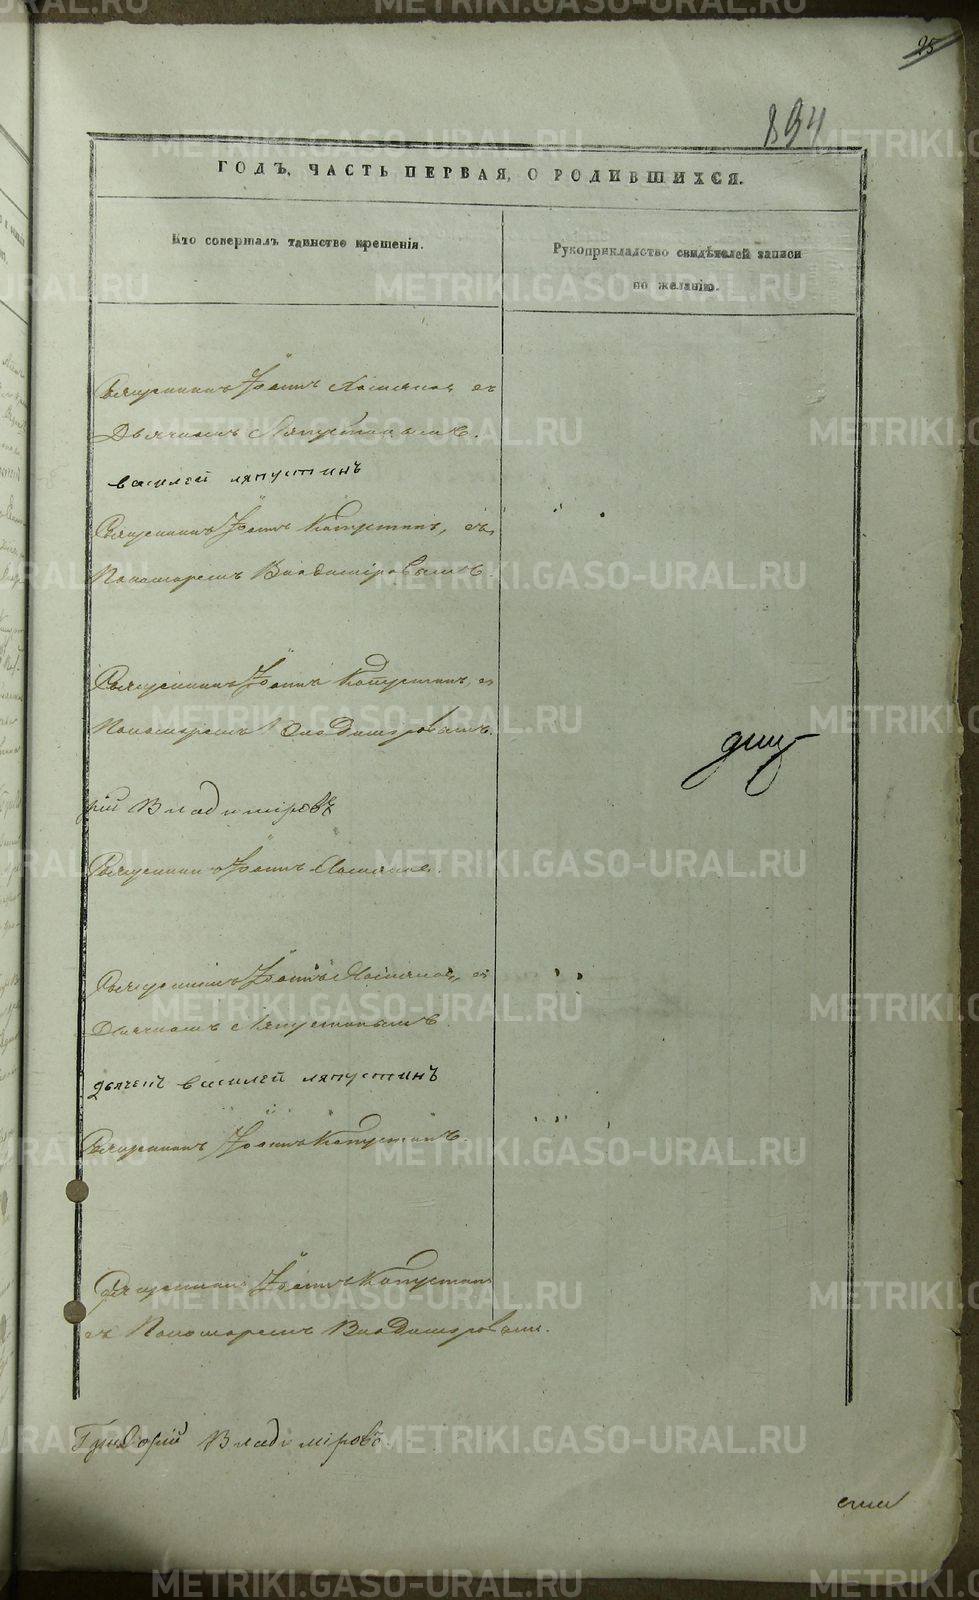 25
894
ГОДЪ, ЧАСТЬ ПЕРВАЯ, О РОДИВШИХСЯ.
Кто совершалъ таинство крещенія.
Рукоприкладство свидѣтелей записи
по желанію.
Священникъ Іоаннъ съ
Дьячкомъ Ляпустинымъ.
василей ляпустинъ
Священникъ Іоаннъ Капустинъ, съ
Пономаремъ Владиміровымъ.
Священникъ Іоаннъ Капустинъ, съ
Пономаремъ Владиміровымъ.
рій Владиміровъ
Священникъ Іоаннъ
Священникъ Іоаннъ съ
Дьячкомъ Ляпустинымъ
дьячекъ василей ляпустинъ
Священникъ Іоаннъ Капустинъ.
Священникъ Іоаннъ Капустинъ
съ Пономаремъ Владиміровым.
Григорій Владиміровъ.
METRIKI.GASO-URAL.RU